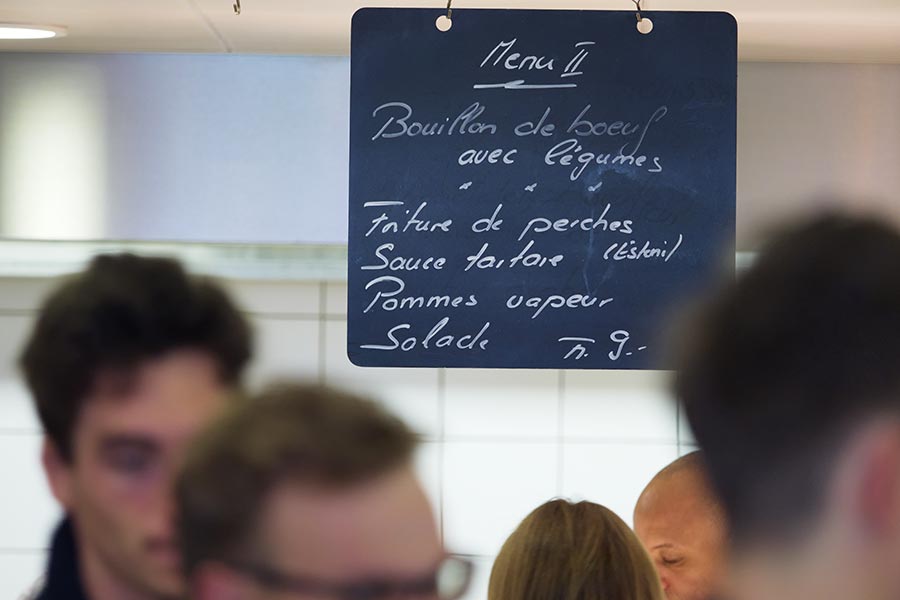 Menu II
Bouillon de boeuf
avec légumes
Friture de perches
Sauce tartare (Estoni)
Pommes vapeur
Salade Fr. 9.-